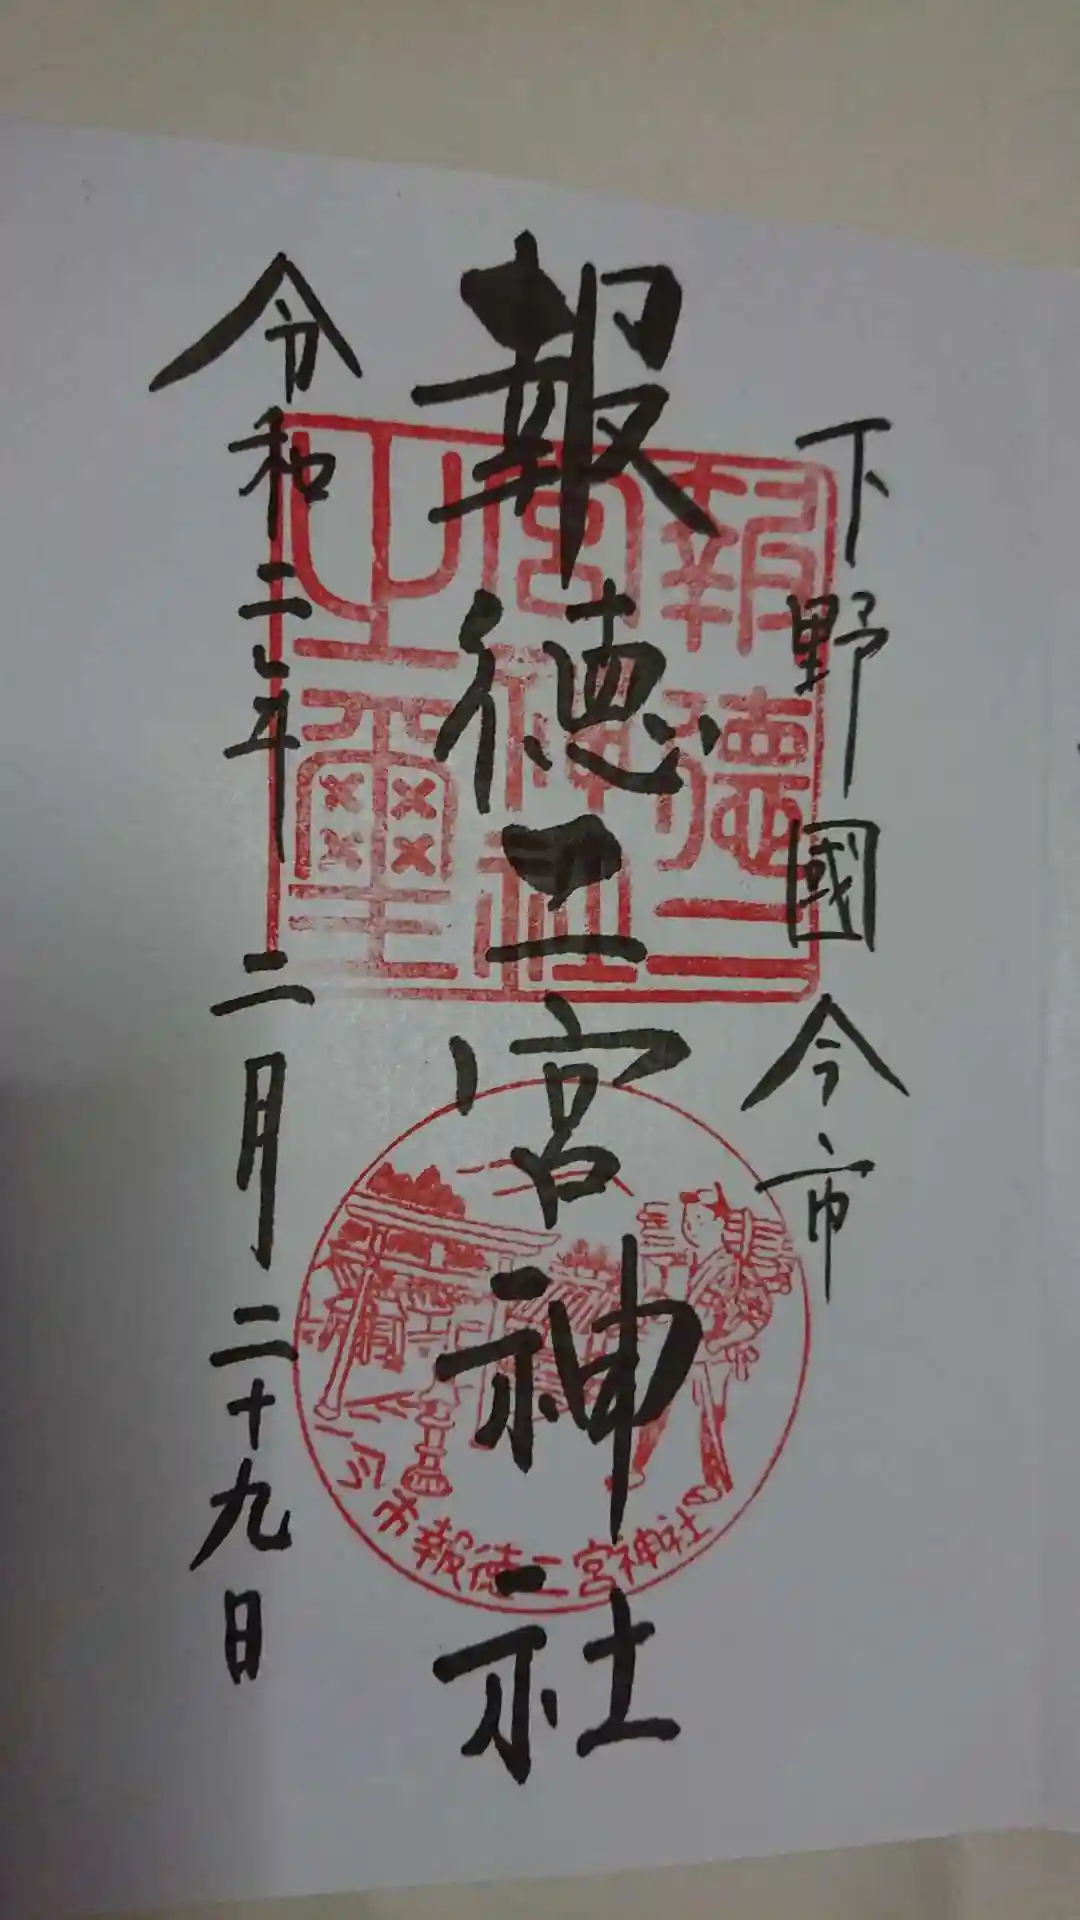 下野國今市
報徳二宮神社
令和二年二月二十九日
報徳二
宮神社
之璽
今市報徳二宮神社